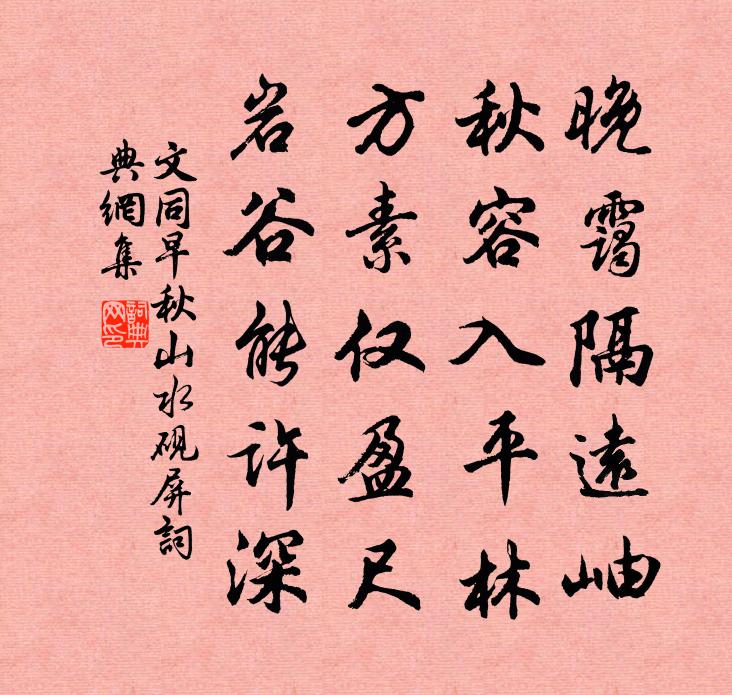 晚霭隔遠岫
秋容入平林
方素仅盈尺
岩谷能许深
文同早秋山水砚屏詞
典網集
詞典网印